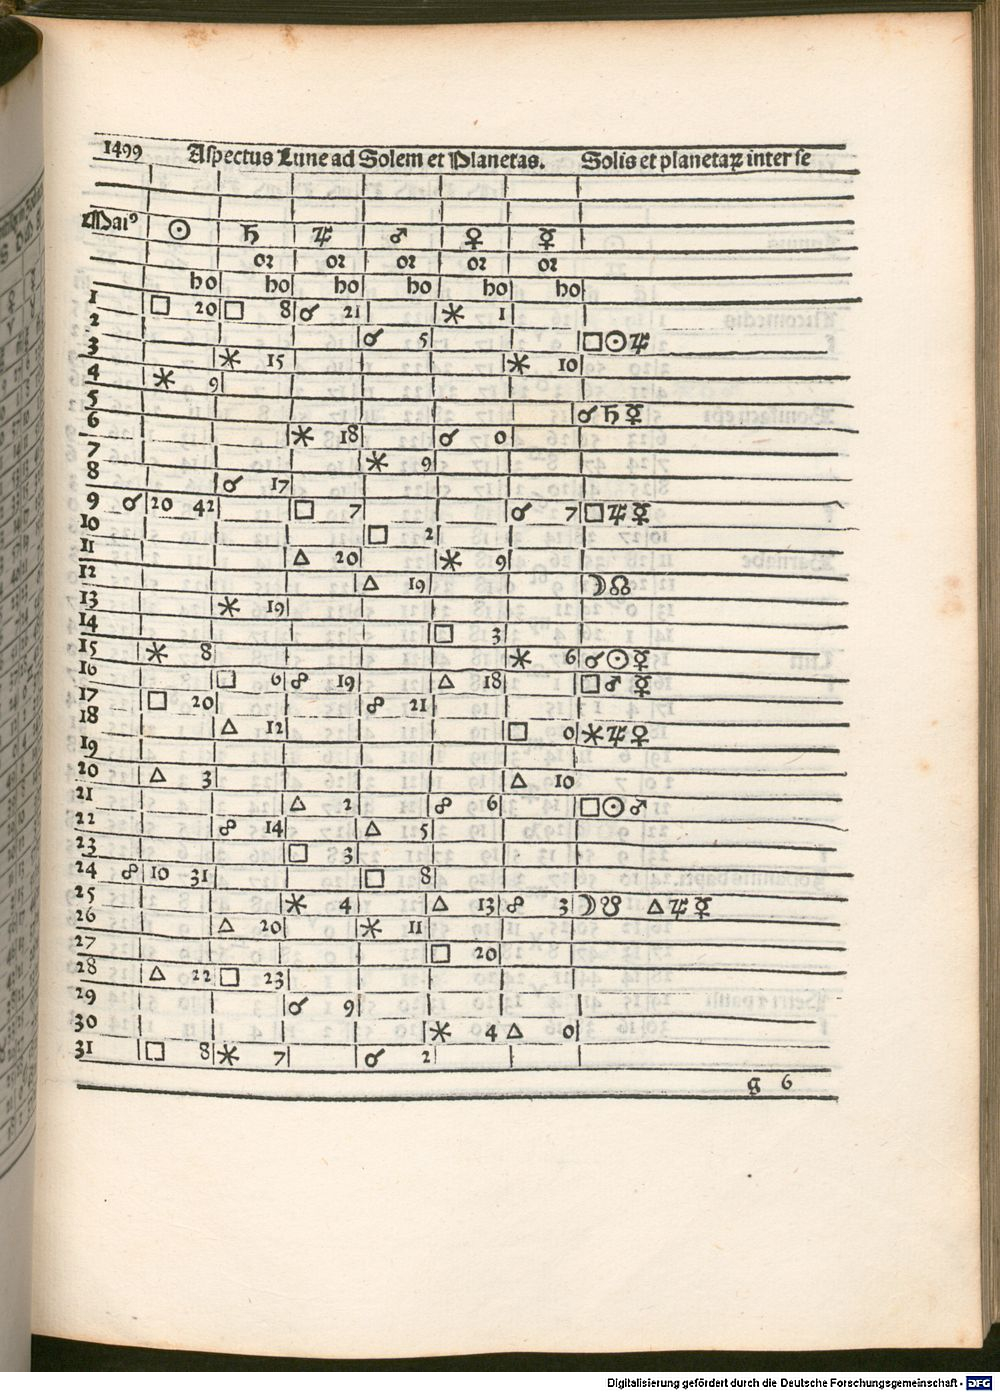 1499 Aſpectus Lune ad Solem et Planetas. Solis et planetaꝝ inter ſe
Maiꝰ ☉ ♄ ♃ ♂ ♀ ☿
oꝛ oꝛ oꝛ oꝛ oꝛ
ho ho ho ho ho ho
1 □ 20 □ 8 ☌ 21 ⚹ 1
2 ☌ 5 □☉♃
3 ⚹ 15 ⚹ 10
4 ⚹ 9
5 ☌♄☿
6 ⚹ 18 ☌ 0
7 ⚹ 9
8 ☌ 17
9 ☌ 20 42 □ 7 ☌ 7 □♃☿
10 □ 2
11 △ 20 ⚹ 9
12 △ 19 ☽☊
13 ⚹ 19
14 □ 3
15 ⚹ 8 ⚹ 6 ☌☉☿
16 □ 6 ☍ 19 △ 18 □♂☿
17 □ 20 ☍ 21
18 △ 12 □ 0 ⚹♃♀
19
20 △ 3 △ 10
21 △ 2 ☍ 6 □☉♂
22 ☍ 14 △ 5
23 □ 3
24 ☍ 10 31 □ 8
25 ⚹ 4 △ 13 ☍ 3 ☽☋ △♃☿
26 △ 20 ⚹ 11
27 □ 20
28 △ 22 □ 23
29 ☌ 9
30 ⚹ 4 △ 0
31 □ 8 ⚹ 7 ☌ 2
g 6
Digitalisierung gefördert durch die Deutsche Forschungsgemeinschaft - DFG